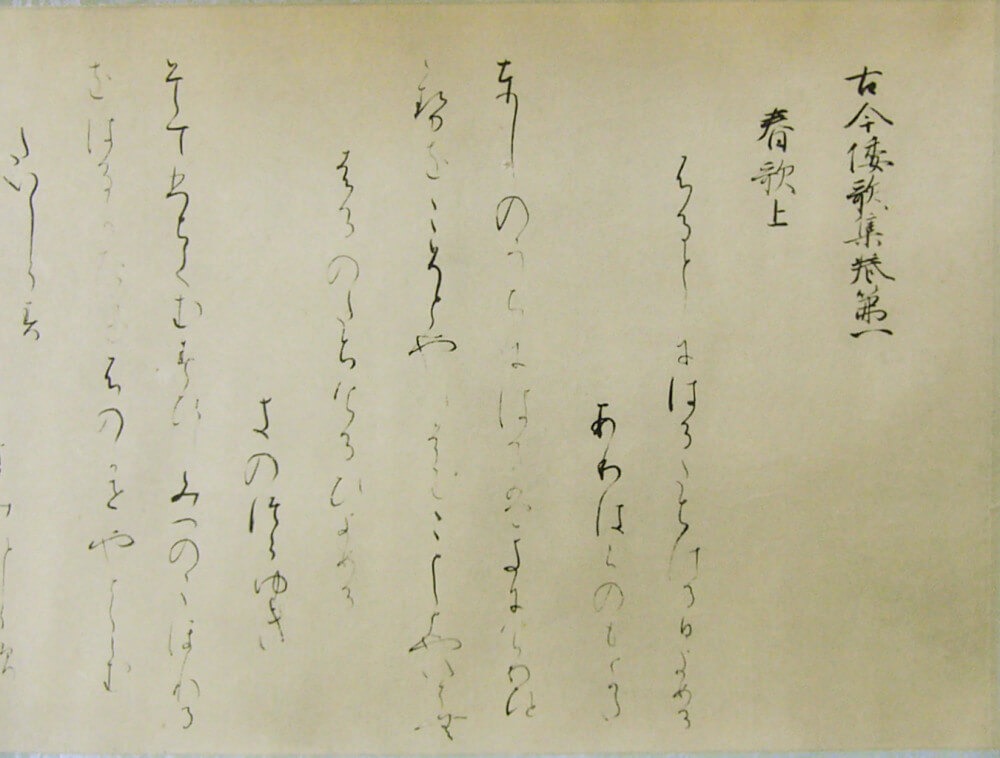 古今倭歌集巻第一
春歌上
ふるとしにはるたちける日よめる
ありはらのもとかた
としのうちにはるはきにけりひとと
せをこそとやいはむことしとやいはむ
はるのたちけるひよめる
きのつらゆき
そてひちてむすひしみつのこほれる
をはるたつけふのかせやとくらむ
たいしらす